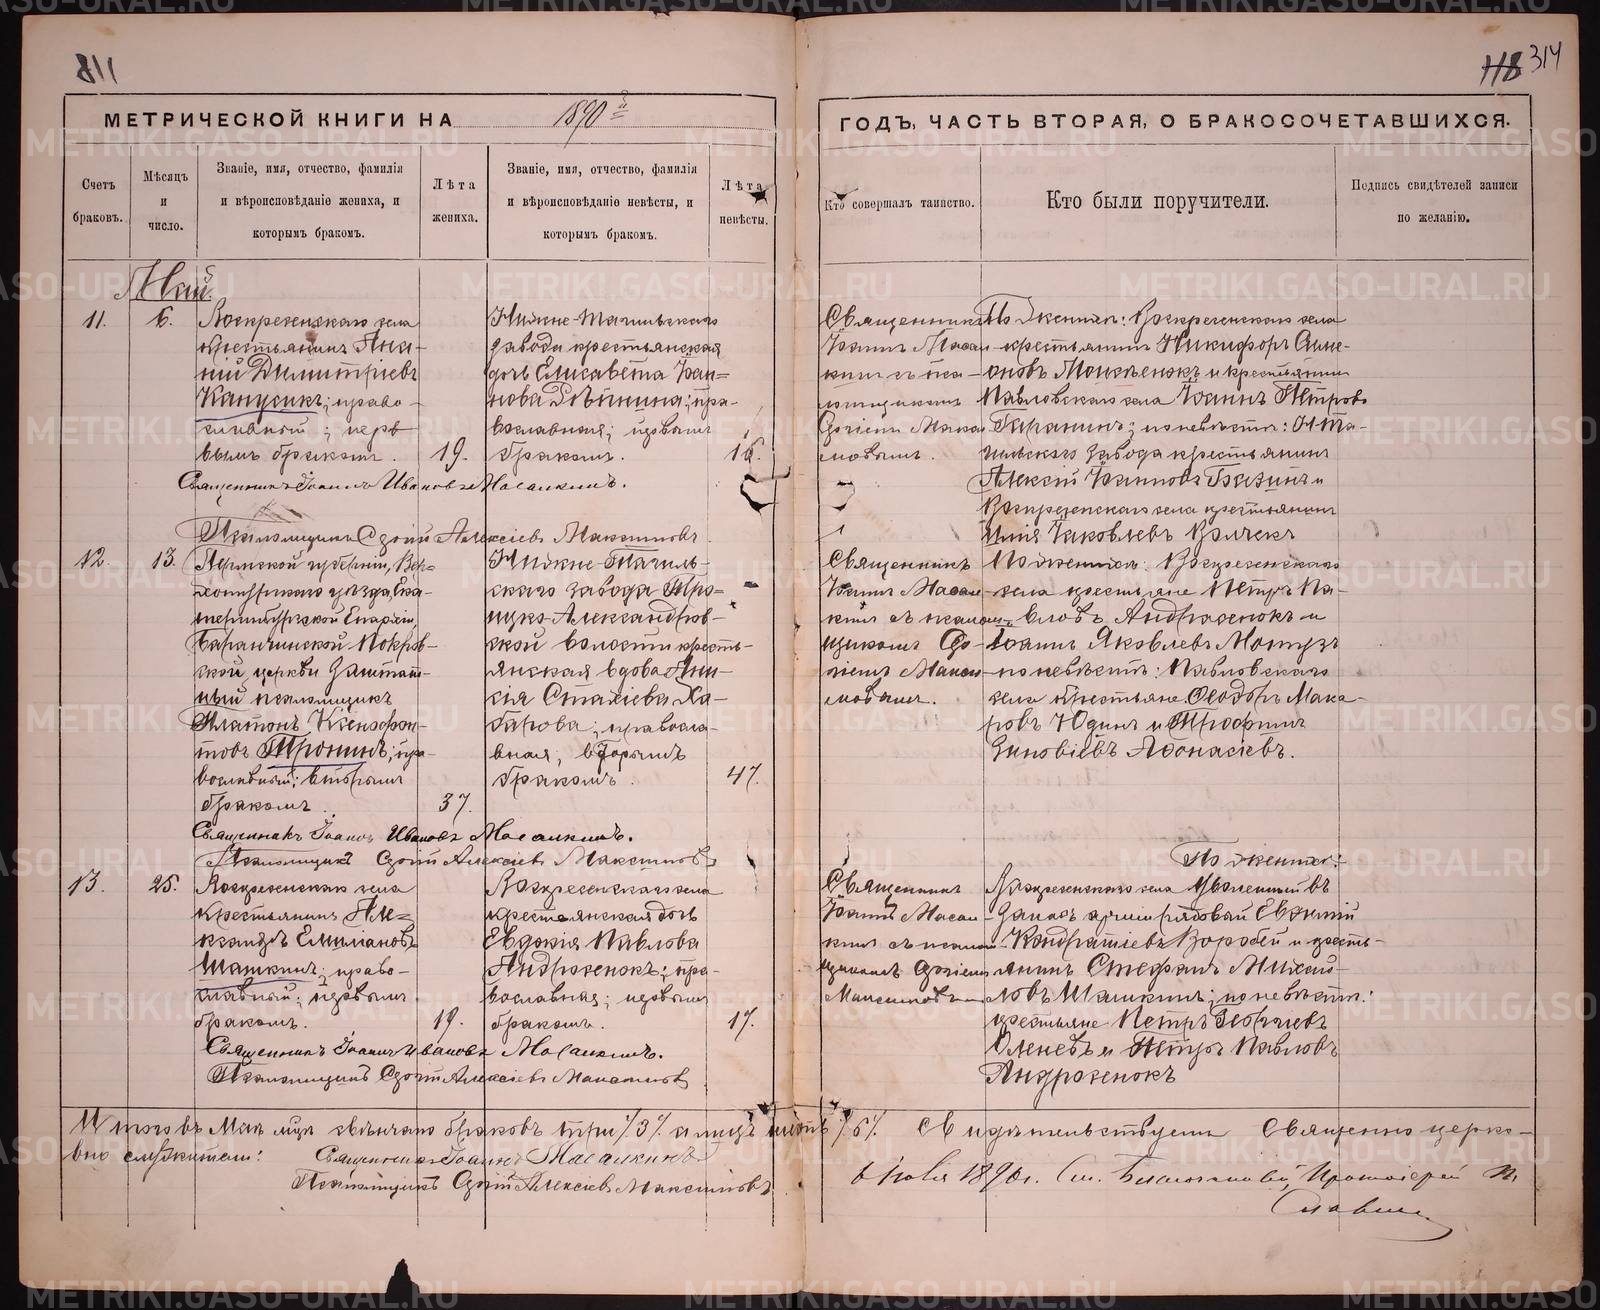 118
118 314
МЕТРИЧЕСКОЙ КНИГИ НА 1890 й
ГОДЪ, ЧАСТЬ ВТОРАЯ, О БРАКОСОЧЕТАВШИХСЯ.
Счетъ браковъ.
Мѣсяцъ и число.
Званіе, имя, отчество, фамилія и вѣроисповѣданіе жениха, и которымъ бракомъ.
Лѣта жениха.
Званіе, имя, отчество, фамилія и вѣроисповѣданіе невѣсты, и которымъ бракомъ.
Лѣта невѣсты.
Кто совершалъ таинство.
Кто были поручители.
Подпись свидѣтелей записи по желанію.
Май.
11.
6.
Воскресенскаго села
крестьянинъ
Димитріевъ
Капусикъ; право-
славный; пер-
вымъ бракомъ.
19.
Нижне-Тагильскаго
завода крестьянская
дочь Елисавета Іоан-
нова Рѣпкина; пра-
вославная; первымъ
бракомъ.
16.
Священникъ
Іоаннъ Масал-
кинъ съ пса-
ломщикомъ
Сергіемъ Макси-
мовымъ.
По женихѣ: Воскресенскаго села
крестьянинъ Никифоръ Симе-
оновъ и крестьянинъ
Павловскаго села Іоаннъ Петровъ
Таранинъ; по невѣстѣ: Н-Та-
гильскаго завода крестьянинъ
Алексій Іоанновъ и
Воскресенскаго села крестьянинъ
Илія Іаковлевъ Волчекъ
Священникъ Іоаннъ Ивановъ Масалкинъ.
Псаломщикъ Сергій Алексіевъ Максимовъ
12.
13.
Пермской губерніи, Вер-
хотурскаго уѣзда, Ека-
теринбургской Епархіи,
Баранчинской Покров-
ской церкви заштат-
ный псаломщикъ
Платонъ Ксенофон-
товъ Тронинъ; пра-
вославный; вторымъ
бракомъ.
37.
Нижне-Тагиль-
скаго завода Тро-
ицко-Александров-
ской волости кресть-
янская вдова
Стахіева Ха-
барова; правосла-
вная; вторымъ
бракомъ.
47.
Священникъ
Іоаннъ Масал-
кинъ съ псалом-
щикомъ Сер-
гіемъ Макси-
мовымъ.
По женихѣ: Воскресенскаго
села крестьяне Петръ Па-
вловъ Андросенокъ и
Іоаннъ Яковлевъ
по невѣстѣ: Павловскаго
села крестьяне Ѳеодоръ Мака-
ровъ Юдинъ и Трофимъ
Зиновіевъ Аѳонасіевъ.
Священникъ Іоаннъ Ивановъ Масалкинъ.
Псаломщикъ Сергій Алексіевъ Максимовъ
13.
25.
Воскресенскаго села
крестьянинъ Але-
ксандръ Емиліановъ
Шашкинъ; право-
славный; первымъ
бракомъ.
19.
Воскресенскаго села
крестьянская дочь
Евдокія Павлова
Андросенокъ; пра-
вославная; первымъ
бракомъ.
17.
Священникъ
Іоаннъ Масал-
кинъ съ псалом-
щикомъ Сергіемъ
Максимовымъ
По женихѣ:
Воскресенскаго села уволенный въ
запасъ арміи рядовой Евѳимій
Кондратіевъ Воробей и кресть-
янинъ Стефанъ Михай-
ловъ Шашкинъ; по невѣстѣ:
крестьяне Петръ Георгіевъ
Оленевъ и Петръ Павловъ
Андросенокъ
Священникъ Іоаннъ Ивановъ Масалкинъ.
Псаломщикъ Сергій Алексіевъ Максимовъ
Итого въ Маѣ м-цѣ вѣнчано браковъ три /3/ а лицъ шесть /6/. Свидѣтельствуемъ Священно-церко-
вно служители: Священникъ Іоаннъ Масалкинъ
Псаломщикъ Сергій Алексіевъ Максимовъ
6 Іюля 1890 г. Протоіерей П.
Славнинъ